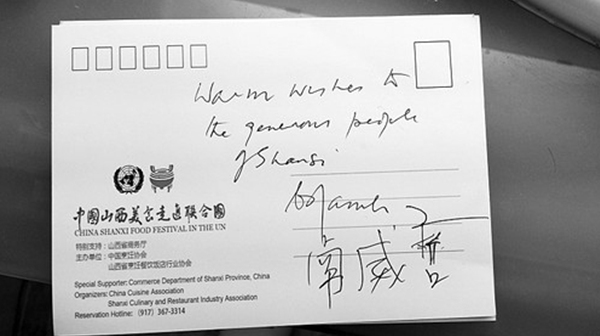 Warm wishes to
the generous people
of Shanxi
中國山西美食走進聯合國
CHINA SHANXI FOOD FESTIVAL IN THE UN
特别支持：山西省商务厅
主办单位：中国烹饪协会
山西省烹饪餐饮饭店行业协会
Special Supporter: Commerce Department of Shanxi Province, China
Organizers: China Cuisine Association
Shanxi Culinary and Restaurant Industry Association
Reservation Hotline: (917) 367-3314
南威哲